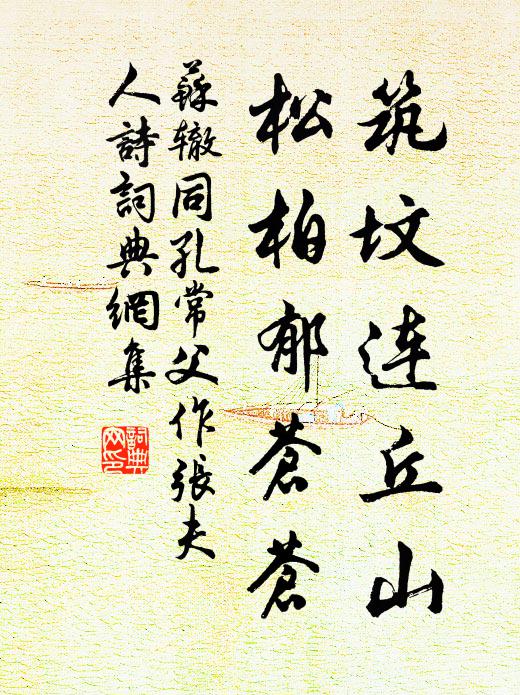 筑坟连丘山
松柏郁苍苍
蘇辙同孔常父作張夫
人詩詞典網集
詞典
网印